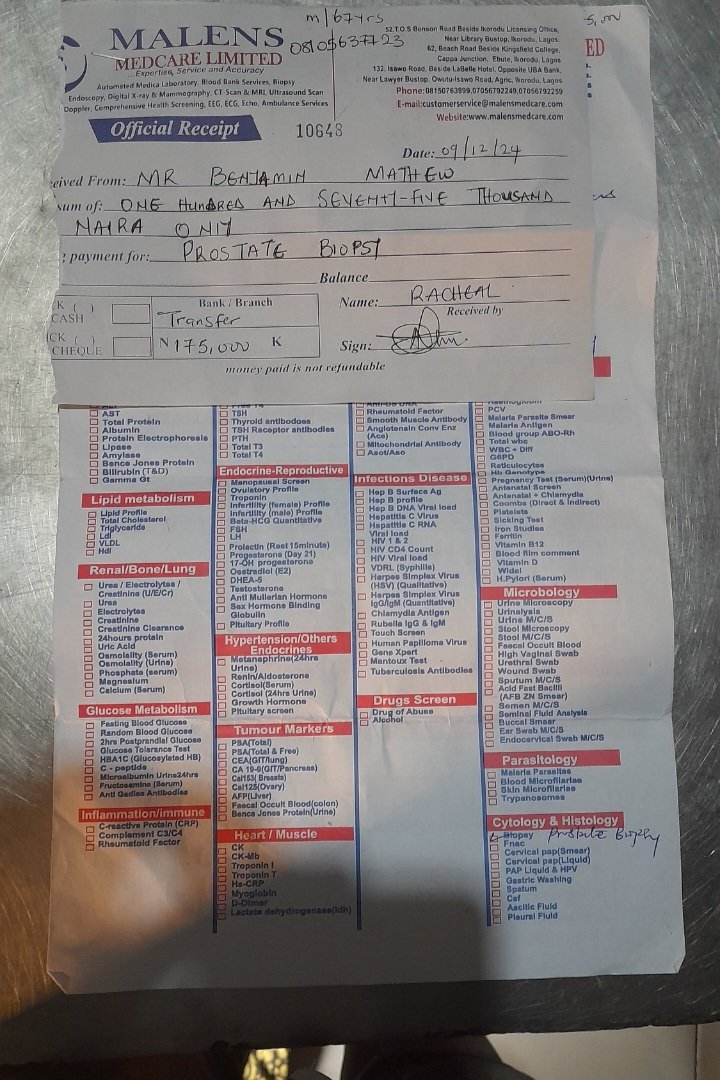 m/67yrs
08105637723
MALENS
MEDCARE LIMITED
...Expertise, Service and Accuracy
Automated Medica Laboratory, Blood Bank Services, Biopsy
Endoscopy, Digital X-ray & Mammography, CT-Scan & MRI, Ultrasound Scan
Doppler, Comprehensive Health Screening, EEG, ECG, Echo, Ambulance Services
52,T.O.S Benson Road Beside Ikorodu Licensing Office,
Near Library Bustop, Ikorodu, Lagos.
62, Beach Road Beside Kingsfield College,
Cappa Junction, Ebute, Ikorodu, Lagos
132, Isawo Road, Beside LaBelle Hotel, Opposite UBA Bank,
Near Lawyer Bustop, Owutu-Isawo Road, Agric, Ikorodu, Lagos
Phone:08150763999,07056792249,07056792259
E-mail:customerservice@malensmedcare.com
Website:www.malensmedcare.com
5,000
ED
Official Receipt
10648
Date: 09/12/24
eived From: MR BENJAMIN MATHEW
sum of: ONE HUNDRED AND SEVENTY-FIVE THOUSAND
NAIRA ONLY
payment for: PROSTATE BIOPSY
Balance
K ( )
CASH
CK ( )
CHEQUE
Bank / Branch
Transfer
N 175,000 K
Name: RACHEAL
Received by
Sign:
money paid is not refundable
AST
Total Protein
Albumin
Protein Electrophoresis
Lipase
Amylase
Bence Jones Protein
Bilirubin (T&D)
Gamma Gt
Lipid metabolism
Lipid Profile
Total Cholesterol
Triglyceride
Ldl
VLDL
Hdl
Renal/Bone/Lung
Urea / Electrolytes /
Creatinine (U/E/Cr)
Urea
Electrolytes
Creatinine
Creatinine Clearance
24hours protein
Uric Acid
Osmolality (Serum)
Osmolality (Urine)
Phosphate (serum)
Magnesium
Calcium (Serum)
Glucose Metabolism
Fasting Blood Glucose
Random Blood Glucose
2hrs Postprandial Glucose
Glucose Tolerance Test
HBA1C (Glucosylated HB)
C - peptide
Microalbumin Urine24hrs
Fructosamine (Serum)
Anti Gadias Antibodies
Inflammation/immune
C-reactive Protein (CRP)
Complement C3/C4
Rheumatoid Factor
Free T4
TSH
Thyroid antibodoes
TSH Receptor antibodies
PTH
Total T3
Total T4
Endocrine-Reproductive
Menopausal Screen
Ovulatory Profile
Troponin
Infertility (female) Profile
Infertility (male) Profile
Beta-HCG Quantitative
FSH
LH
Prolactin (Rest 15minute)
Progesterone (Day 21)
17-OH progesterone
Oestradiol (E2)
DHEA-5
Testosterone
Anti Mullerian Hormone
Sex Hormone Binding
Globulin
Pituitary Profile
Hypertension/Others
Endocrines
Metanephrine(24hrs
Urine)
Renin/Aldosterone
Cortisol(Serum)
Cortisol (24hrs Urine)
Growth Hormone
Pituitary screen
Tumour Markers
PSA(Total)
PSA(Total & Free)
CEA(GIT/lung)
CA 19-9(GIT/Pancreas)
Cal153( Breasts)
Cal125(Ovary)
AFP(Liver)
Faecal Occult Blood(colon)
Bence Jones Protein(Urine)
Heart / Muscle
CK
CK-Mb
Troponin I
Troponin T
Hs-CRP
Myoglobin
D-Dimer
Lactate dehydrogenase(ldh)
Anti-DS DNA
Rheumatoid Factor
Smooth Muscle Antibody
Angiotensin Conv Enz
(Ace)
Mitochondrial Antibody
Asot/Aso
Infections Disease
Hep B Surface Ag
Hep B profile
Hep B DNA Viral load
Hepatitis C Virus
Hepatitis C RNA
Viral load
HIV 1 & 2
HIV CD4 Count
HIV Viral load
VDRL (Syphilis)
Herpes Simplex Virus
(HSV) (Qualitative)
Herpes Simplex Virus
IgG/IgM (Quantitative)
Chlamydia Antigen
Rubella IgG & IgM
Touch Screen
Human Papilloma Virus
Gene Xpert
Mantoux Test
Tuberculosis Antibodies
Drugs Screen
Drug of Abuse
Alcohol
Haemoglobin
PCV
Malaria Parasite Smear
Malaria Antigen
Blood group ABO-Rh
Total wbc
WBC + Diff
G6PD
Reticulocytes
Hb Genotype
Pregnancy Test (Serum)(Urine)
Antenatal Screen
Antenatal + Chlamydia
Coombs (Direct & Indirect)
Platelets
Sicking Test
Iron Studies
Ferritin
Vitamin B12
Blood film comment
Vitamin D
Widal
H.Pylori (Serum)
Microbology
Urine Microscopy
Urinalysis
Urine M/C/S
Stool Microscopy
Stool M/C/S
Faecal Occult Blood
High Vaginal Swab
Urethral Swab
Wound Swab
Sputum M/C/S
Acid Fast Bacilli
(AFB ZN Smear)
Semen M/C/S
Seminal Fluid Analysis
Buccal Smear
Ear Swab M/C/S
Endocervical Swab M/C/S
Parasitology
Malaria Parasites
Blood Microfilariae
Skin Microfilariae
Trypanosomes
Cytology & Histology
Biopsy Prostate Biopsy
Fnac
Cervical pap(Smear)
Cervical pap(Liquid)
PAP Liquid & HPV
Gastric Washing
Spatum
Csf
Ascitic Fluid
Pleural Fluid